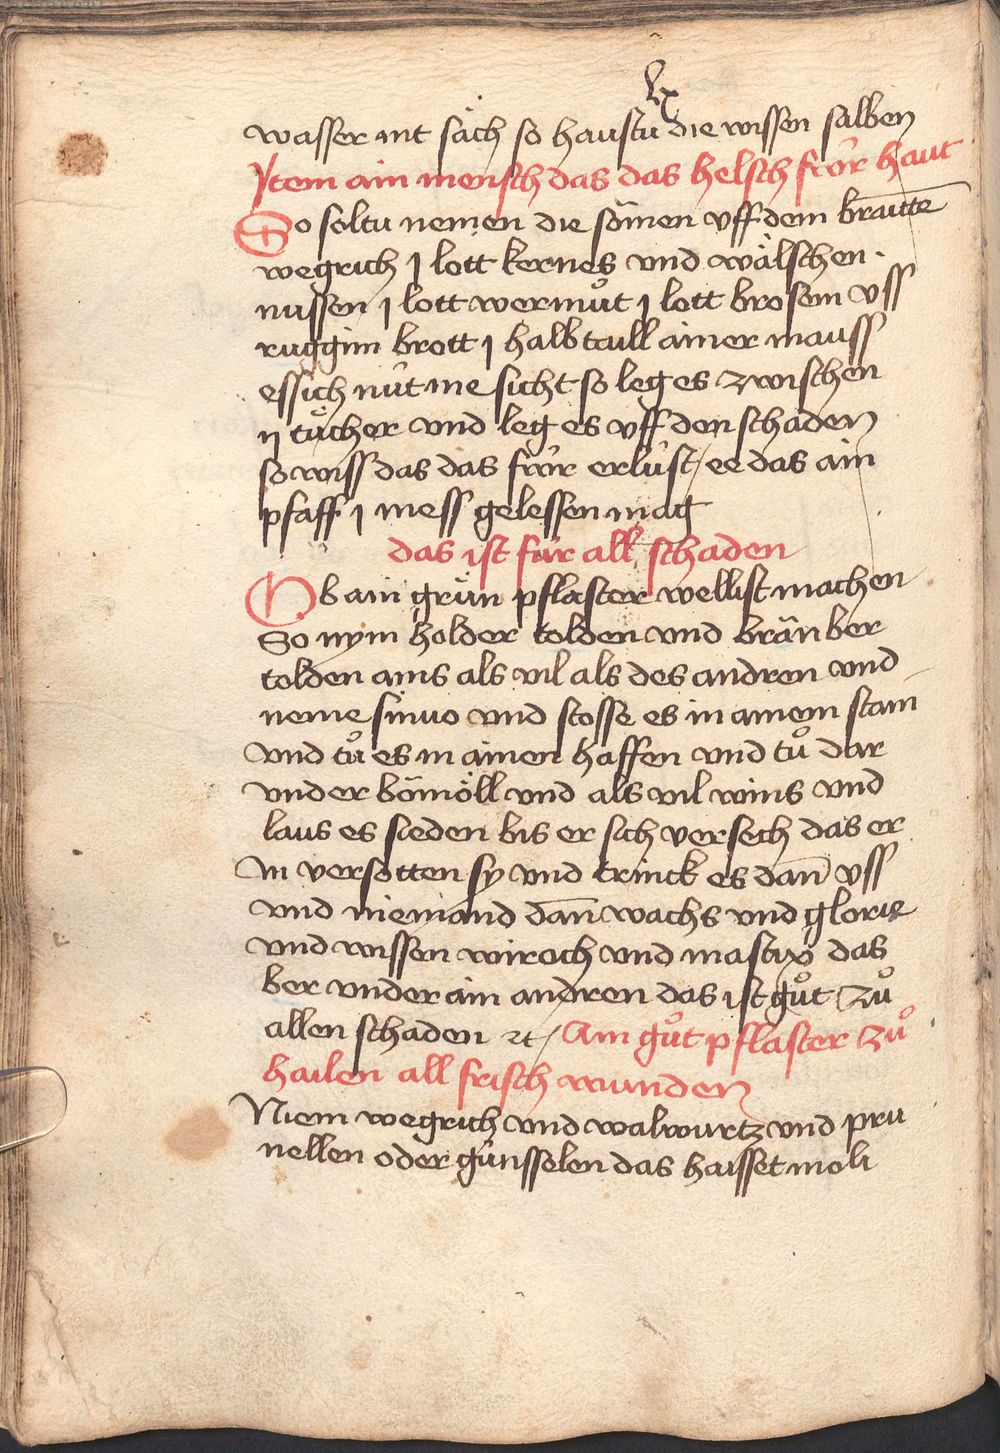 lx
wasser nit säch so haustu die wissen salben
Jtem ain mensch das das helsch für haut
So soltu nemen die sömen vff dem braitte
wegrich j lott kernes vnd wälschen
nussen j lott wermůt j lott brosem vss
ruggim brott j halb taill ainer mauss
essich nüt me sicht so leg es zwischen
ij tücher vnd leg es vff den schaden
so wiss das das für erlüst / ee das ain
pfaff j mess gelessen mag
das ist für all schaden
Ob ain grün pflaster wellist machen
So nym holder tolden vnd bränber
tolden ains als vil als des andren vnd
neme sinuo vnd stosse es in ainem stain
vnd tů es in ainen haffen vnd tů dar
vnder bömöll vnd als vil wins vnd
laus es sieden bis er sich versech das er
in versotten sy vnd trinck es dañ vss
vnd niemand dañ wachs vnd glorie
vnd wissen wiroch vnd mastix das
ber vnder ain andren das ist gůt zů
allen schaden ꝛc / Ain gůt pflaster zů
hailen all frisch wunden
Niem wegrich vnd walwurtz vnd pru
nellen oder günsselen das haisset moli